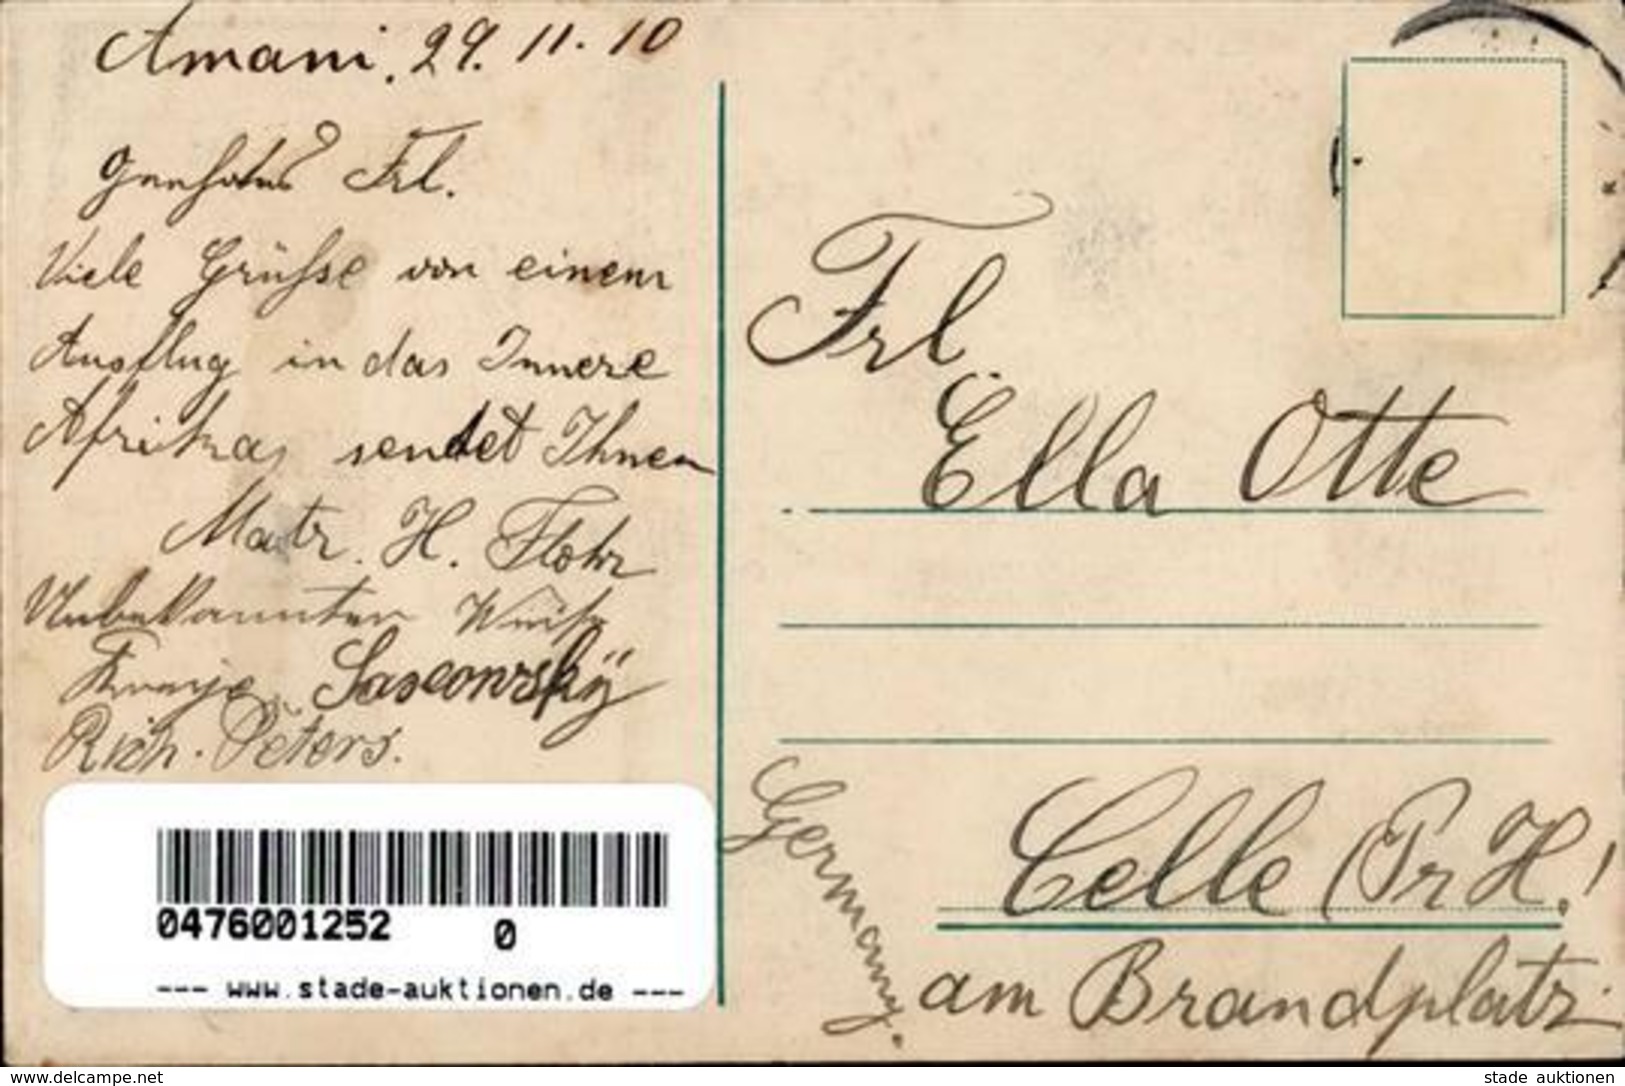 Amani. 29. 11. 10
Geehrtes Frl.
Viele Grüsse von einem
Ausflug in das Innere
Afrikas sendet Ihnen
Matr. H. Flohr
Unbekannter Weise
Sasconrsky
Rich. Peters.
Frl.
Ella Otte
Celle (Pr H.!
am Brandplatz.
Germany.
0476001252 0
--- www.stade-auktionen.de ---
www.delcampe.net
stade auktionen